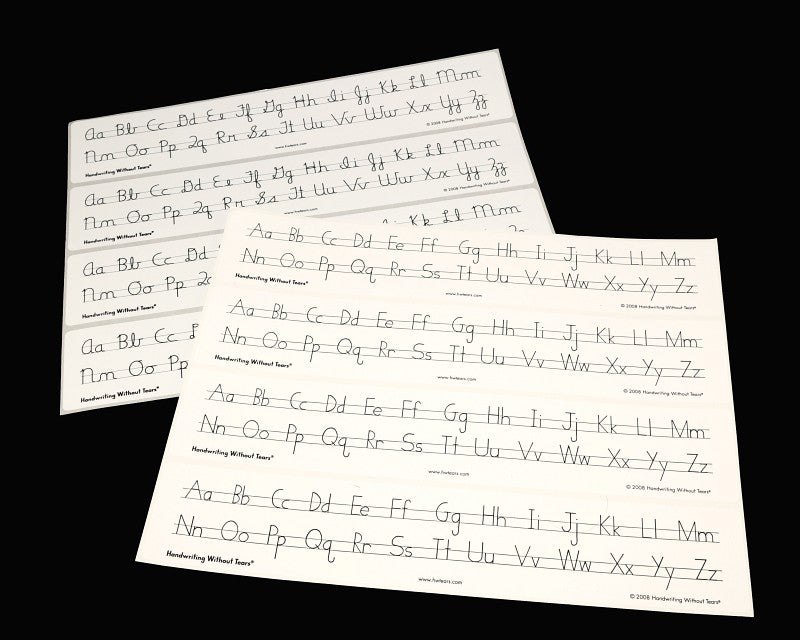 Aa Bb Cc Dd Ee Ff Gg Hh Ii Jj Kk Ll Mm
Nn Oo Pp Qq Rr Ss Tt Uu Vv Ww Xx Yy Zz
Handwriting Without Tears® www.hwtears.com © 2008 Handwriting Without Tears®
Aa Bb Cc Dd Ee Ff Gg Hh Ii Jj Kk Ll Mm
Nn Oo Pp Qq Rr Ss Tt Uu Vv Ww Xx Yy Zz
Handwriting Without Tears® www.hwtears.com © 2008 Handwriting Without Tears®
Aa Bb Cc Dd Kk Ll Mm
Nn Oo Pp
Handwriting Without Tears®
Aa Bb Cc
Nn Oo Pp
Handwriting Without Tears®
Aa Bb Cc Dd Ee Ff Gg Hh Ii Jj Kk Ll Mm
Nn Oo Pp Qq Rr Ss Tt Uu Vv Ww Xx Yy Zz
Handwriting Without Tears® www.hwtears.com © 2008 Handwriting Without Tears®
Aa Bb Cc Dd Ee Ff Gg Hh Ii Jj Kk Ll Mm
Nn Oo Pp Qq Rr Ss Tt Uu Vv Ww Xx Yy Zz
Handwriting Without Tears® www.hwtears.com © 2008 Handwriting Without Tears®
Aa Bb Cc Dd Ee Ff Gg Hh Ii Jj Kk Ll Mm
Nn Oo Pp Qq Rr Ss Tt Uu Vv Ww Xx Yy Zz
Handwriting Without Tears® www.hwtears.com © 2008 Handwriting Without Tears®
Aa Bb Cc Dd Ee Ff Gg Hh Ii Jj Kk Ll Mm
Nn Oo Pp Qq Rr Ss Tt Uu Vv Ww Xx Yy Zz
Handwriting Without Tears® www.hwtears.com © 2008 Handwriting Without Tears®